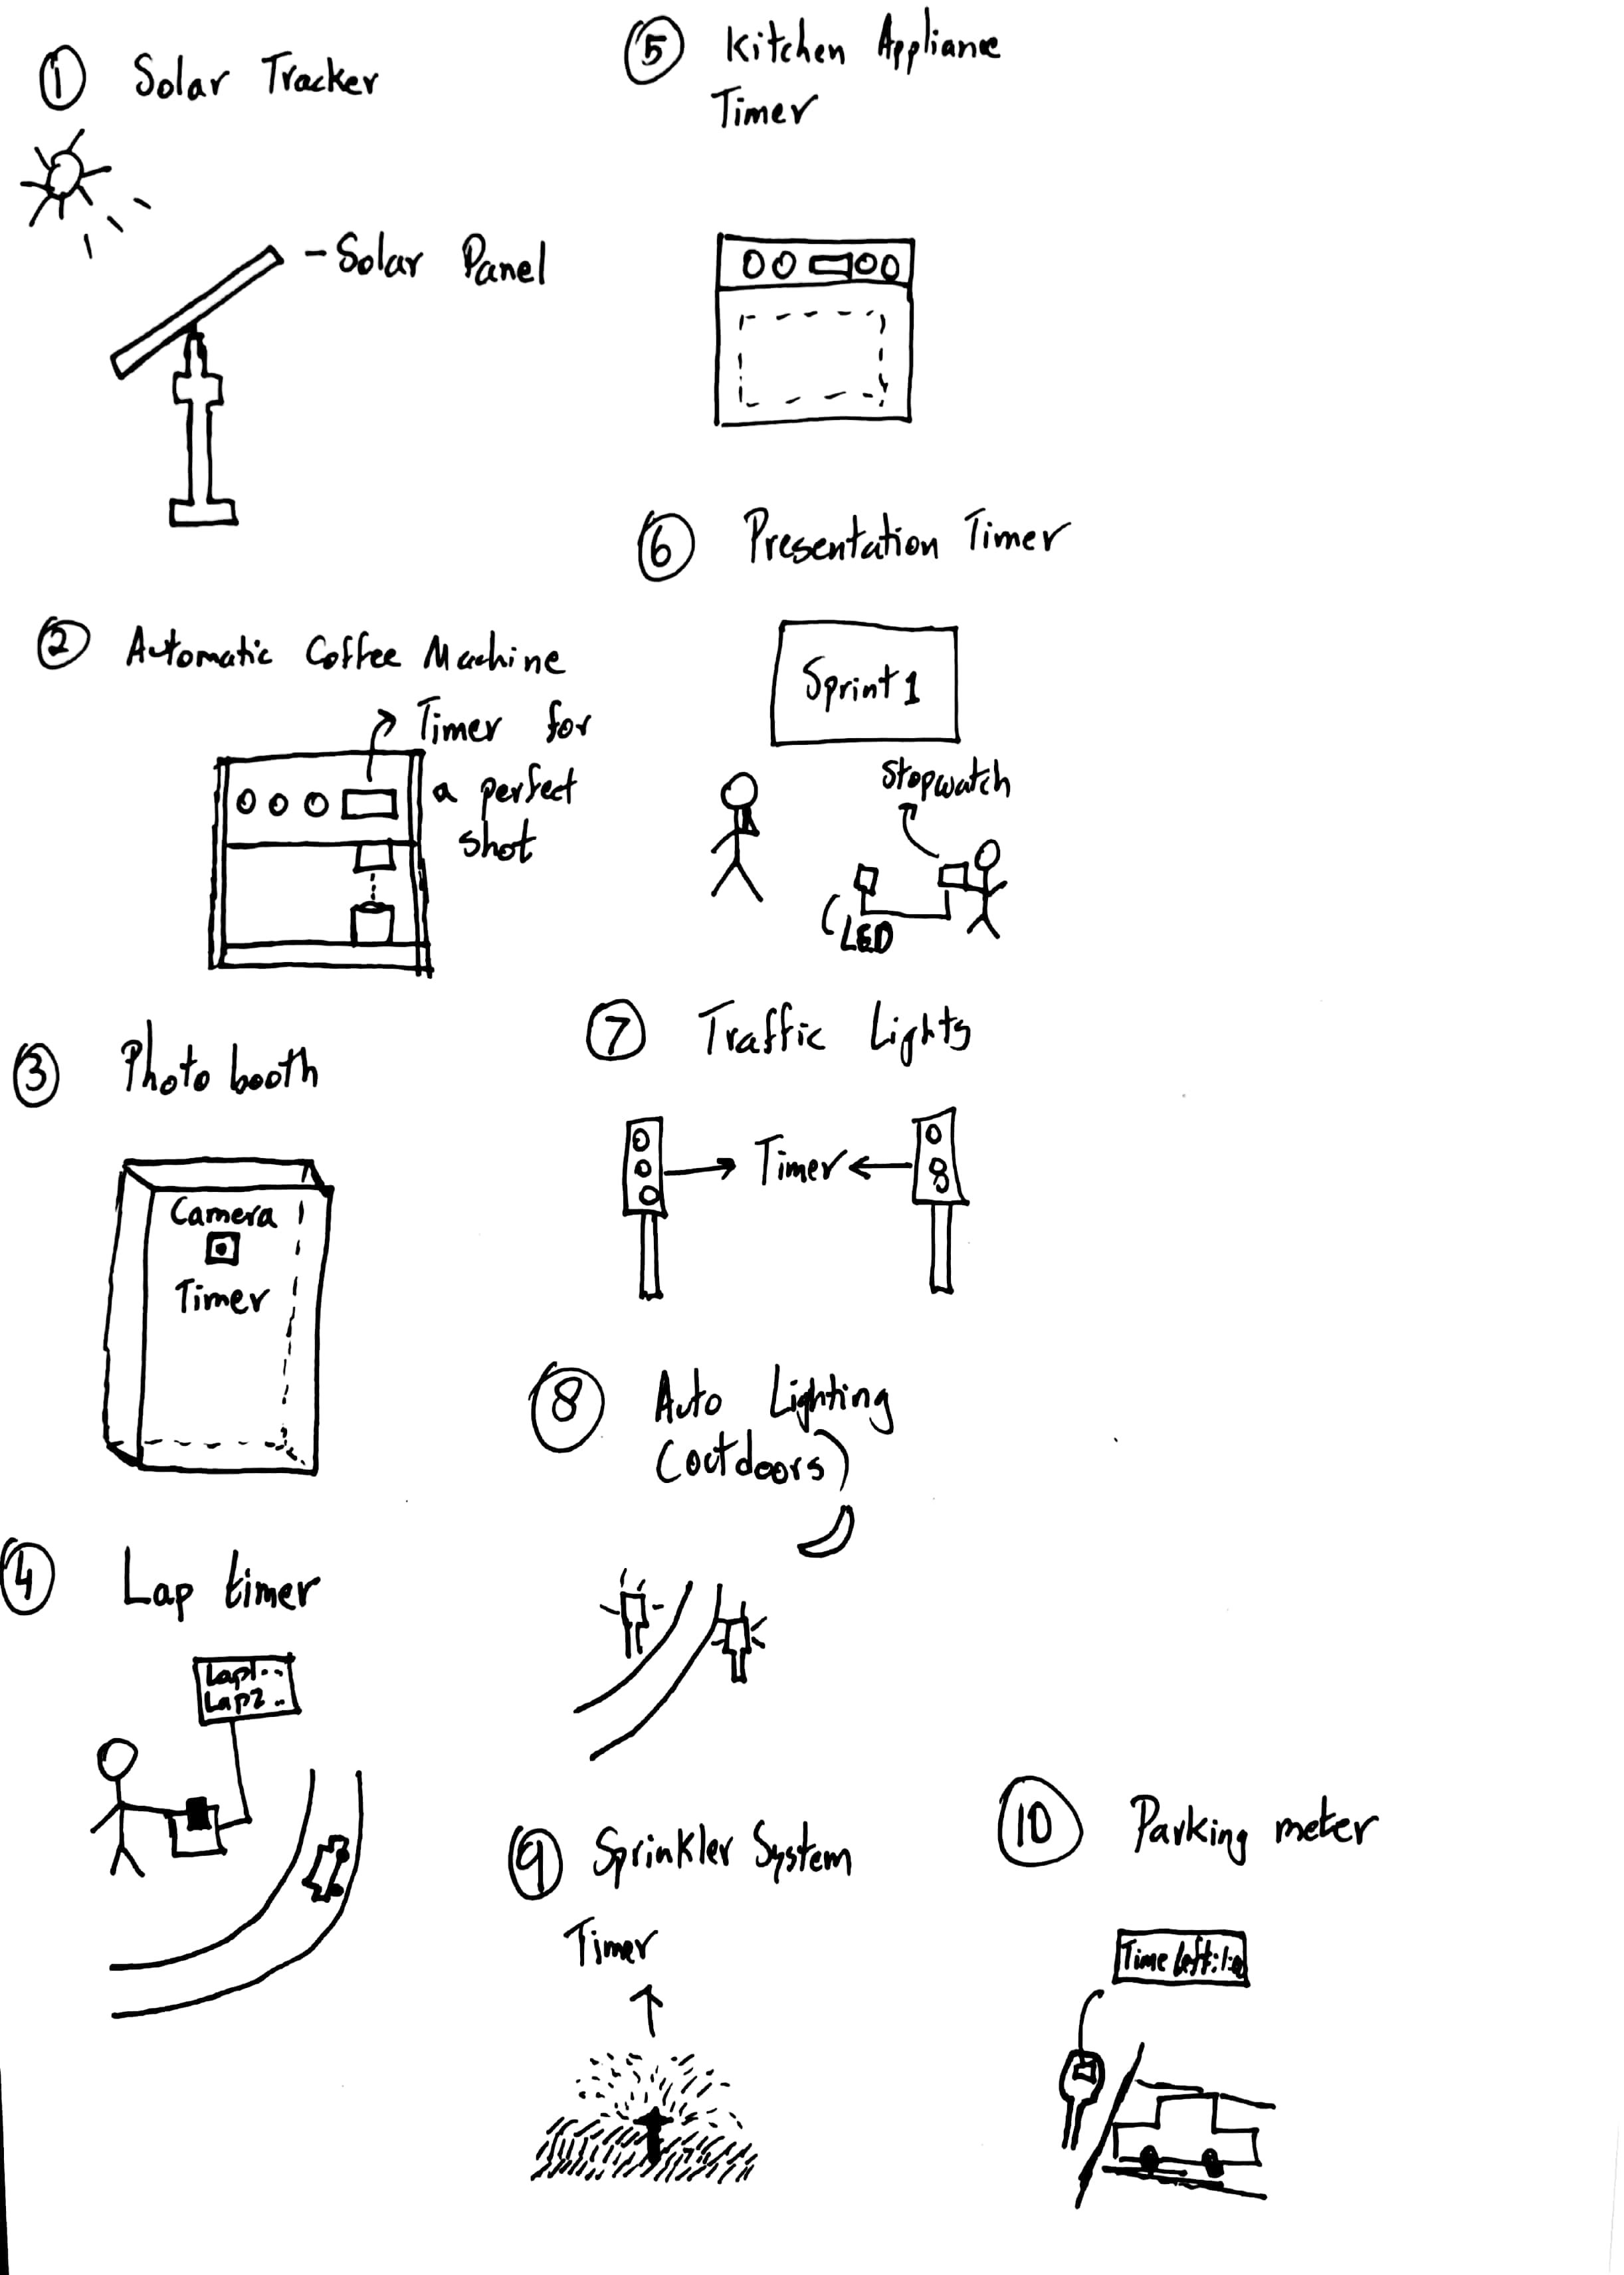 ① Solar Tracker
- Solar Panel
② Automatic Coffee Machine
Timer for
a perfect
shot
③ Photo booth
Camera
Timer
④ Lap timer
Lap1:--
Lap2..
⑤ Kitchen Appliance
Timer
⑥ Presentation Timer
Sprint 1
Stopwatch
LED
⑦ Traffic Lights
Timer
⑧ Auto Lighting
(outdoors)
⑨ Sprinkler System
Timer
⑩ Parking meter
Time left: